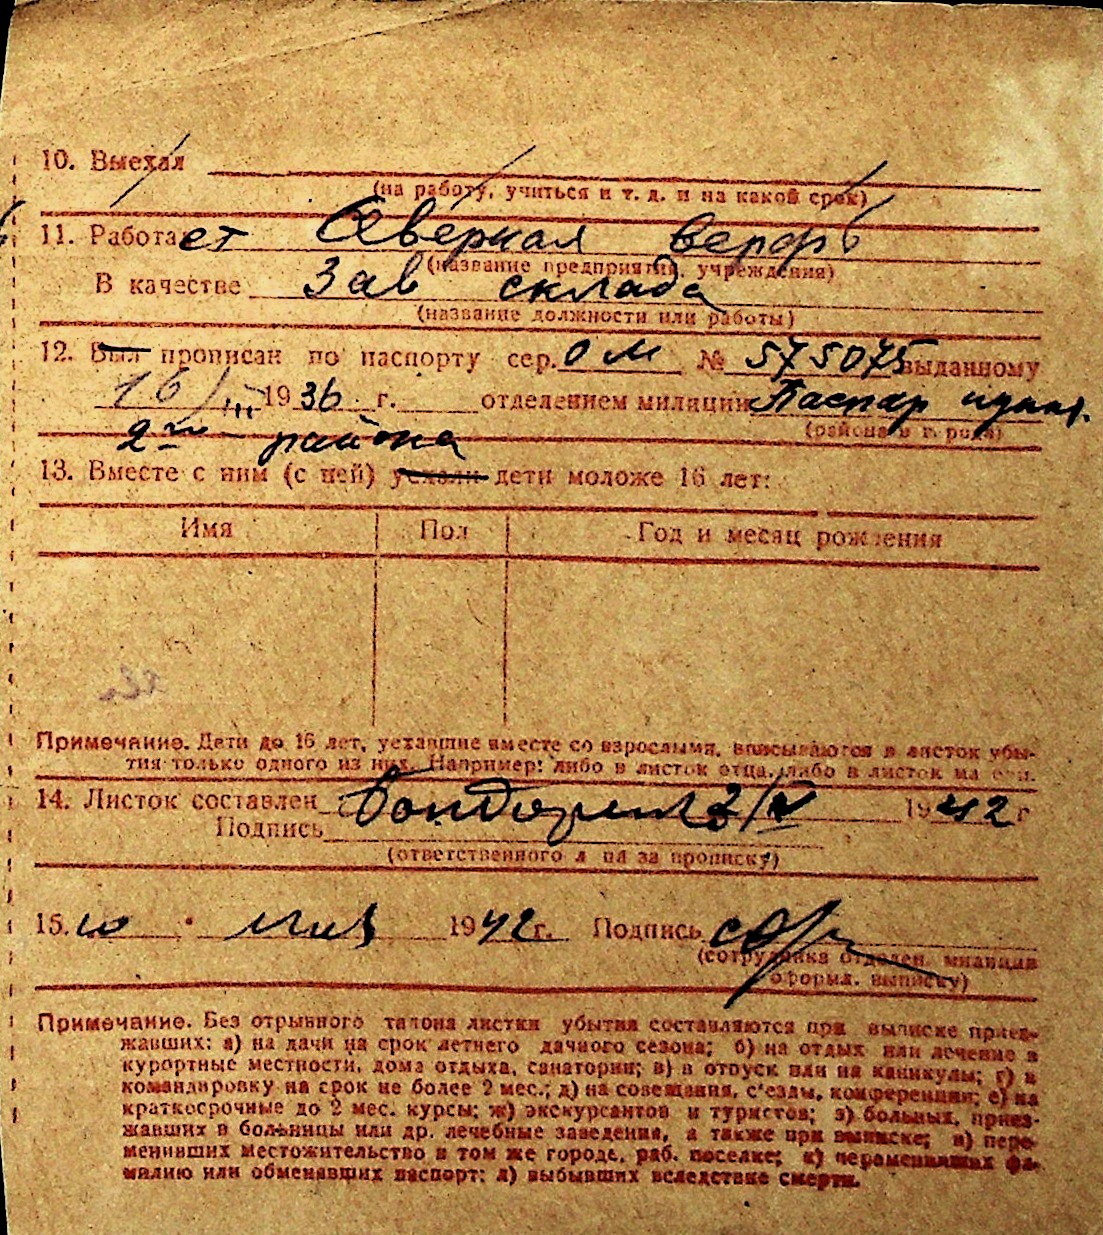 10. Выехал
(на работу, учиться и т. д. и на какой срок)
11. Работает Северная верфь
(название предприятия, учреждения)
В качестве Зав склада
(название должности или работы)
12. Был прописан по паспорту сер. ОМ № 575075 выданному
16/III 1936 г. отделением милиции Паспар пункт.
(района в городе)
2го района
13. Вместе с ним (с ней) уехали дети моложе 16 лет:
Имя Пол Год и месяц рождения
Примечание. Дети до 16 лет, уехавшие вместе со взрослыми, вписываются в листок убы-
тия только одного из них. Например: либо в листок отца, либо в листок матери.
14. Листок составлен 1942 г
Подпись
(ответственного лица за прописку)
15. 10 • мая 1942 г. Подпись
(сотрудника отделен. милиции
оформл. выписку)
Примечание. Без отрывного талона листки убытия составляются при выписке приез-
жавших: а) на дачи на срок летнего дачного сезона; б) на отдых или лечение в
курортные местности, дома отдыха, санатории; в) в отпуск или на каникулы; г) в
командировку на срок не более 2 мес.; д) на совещания, с'езды, конференции; е) на
краткосрочные до 2 мес. курсы; ж) экскурсантов и туристов; з) больных, приез-
жавших в больницы или др. лечебные заведения, а также при выписке; и) пере-
менивших местожительство в том же городе, раб. поселке; к) переменивших фа-
милию или обменявших паспорт; л) выбывших вследствие смерти.